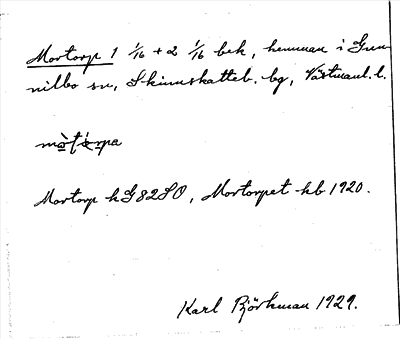 Mortorp 1 1/16 + 2 1/16 bek, hemman i Gun
nilbo sn, Skinnskatteb. bg, Västmanl. l.
Mortorp hG82SO, Mortorpet hb 1920.
Karl Björkman 1929.